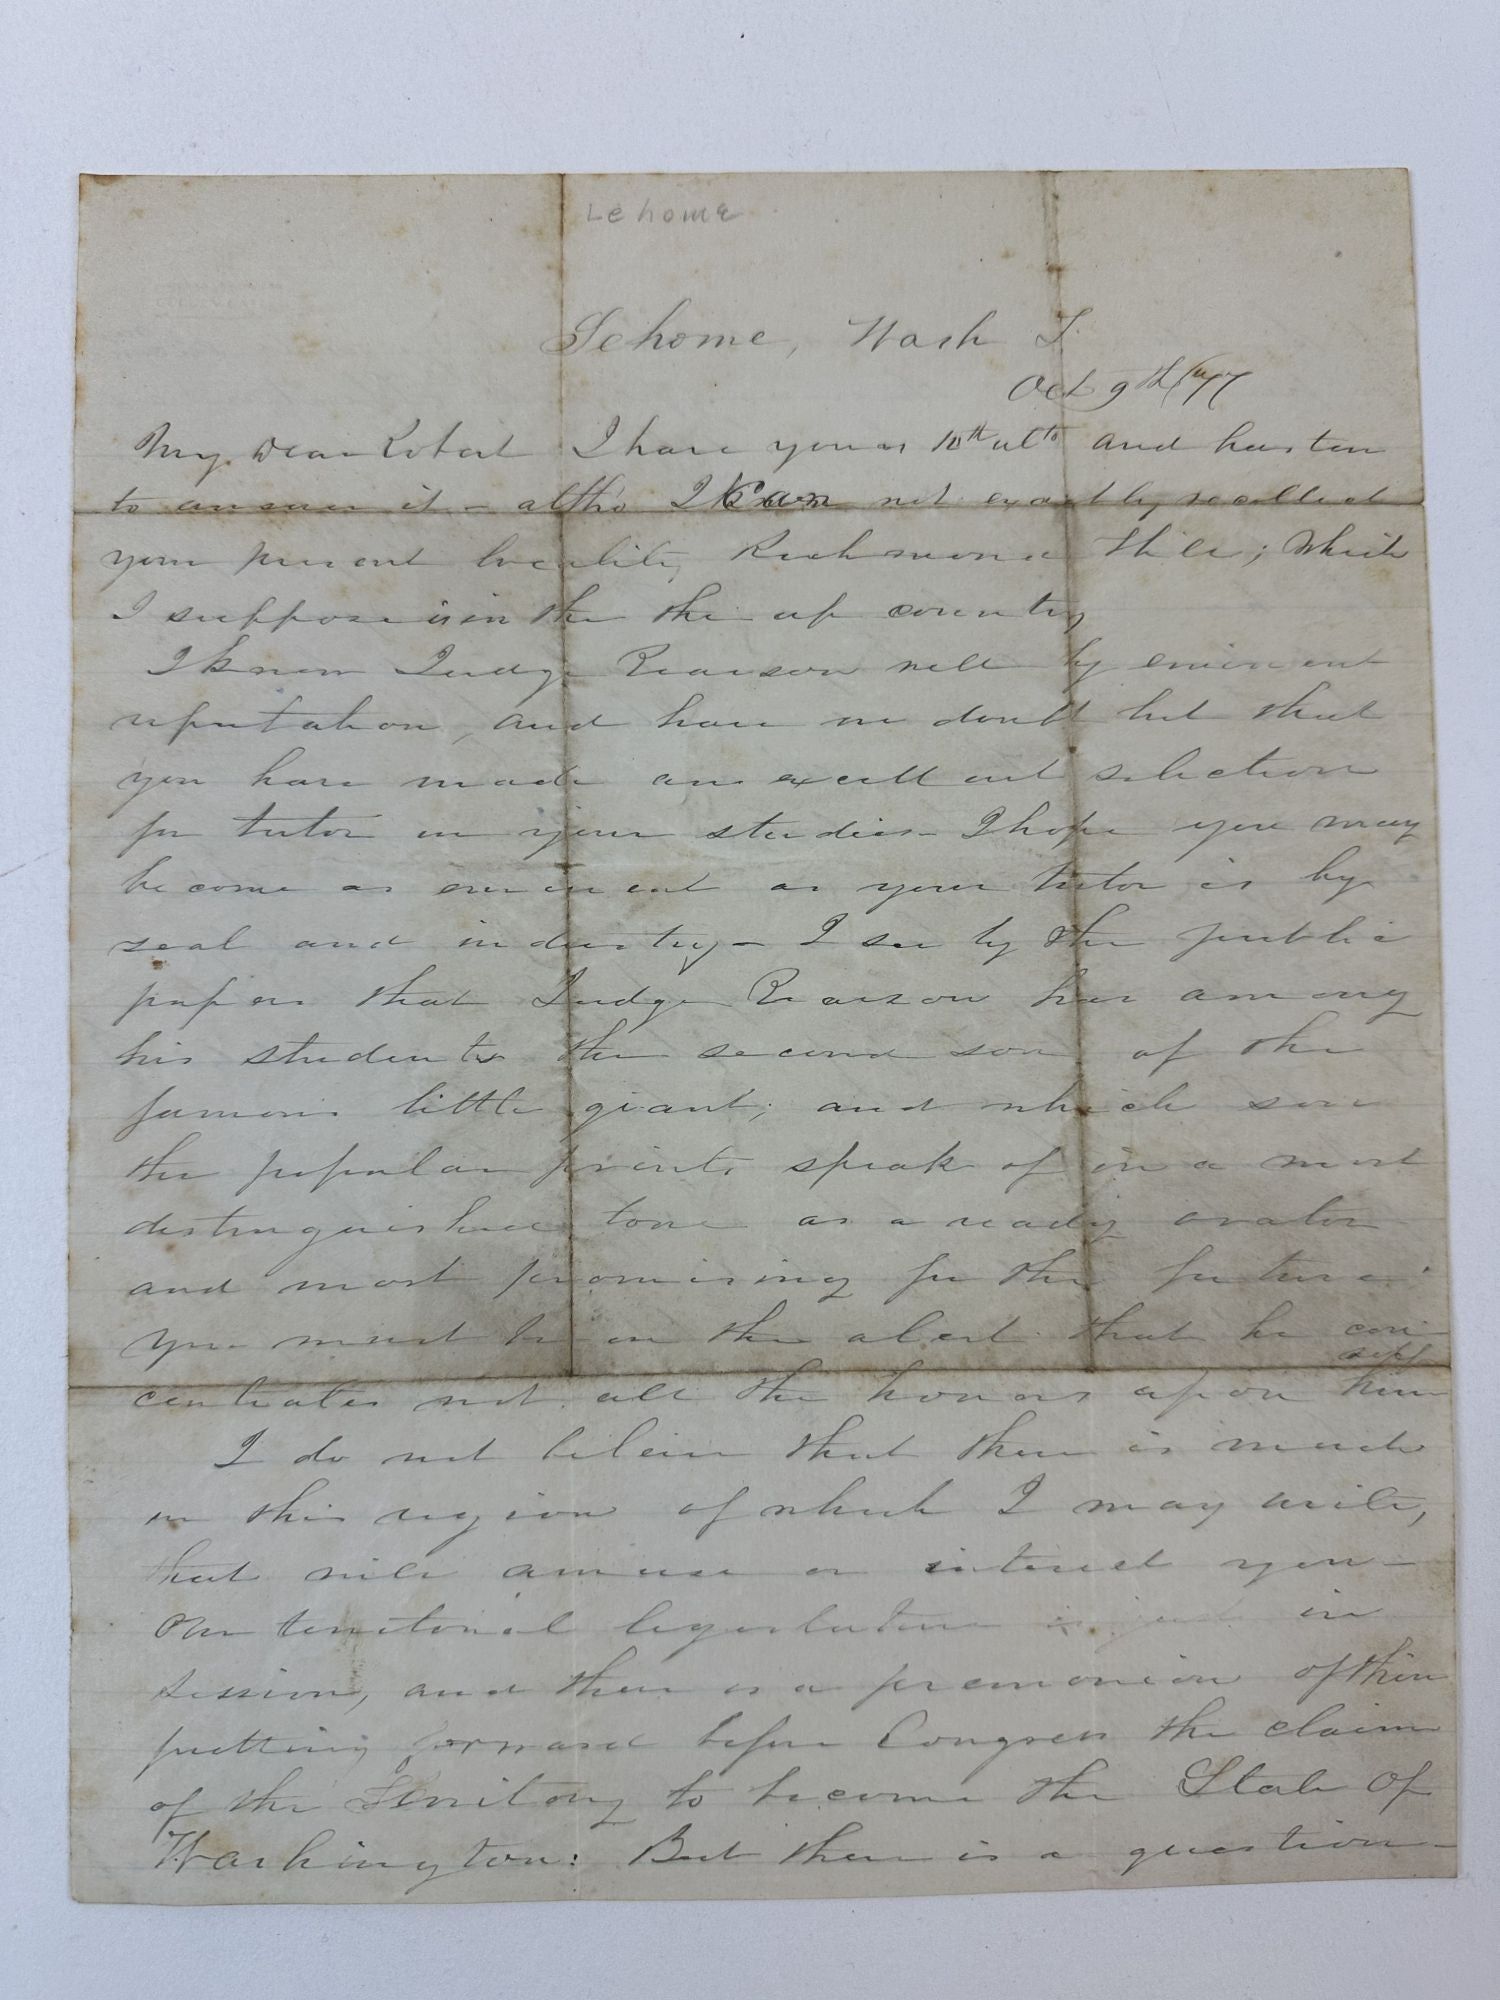 Lehome
Sehome, Wash T.
Oct 9th /77
My Dear Robert I have yours 10th ulto and hasten
to answer it - altho I can not exactly recollect
your present locality, Richmond Hill; which
I suppose is in the the up country
I know Judge Pearson well by eminent
reputation, and have no doubt but that
you have made an excellent selection
for tutor in your studies - I hope you may
become as eminent as your tutor is by
zeal and industry - I see by the public
papers that Judge Pearson has among
his students the second son of the
famous little giant; and which son
the popular prints speak of in a most
distinguished tone as a ready orator
and most promising for the future.
You must be on the alert that he con-
self
centrates not all the honors upon him
I do not believe that there is much
in this region of which I may write,
that will amuse or interest you -
Our territorial legislature is just in
session, and there is a of their
putting forward before Congress the claim
of the Territory to become the State of
Washington: But there is a question -